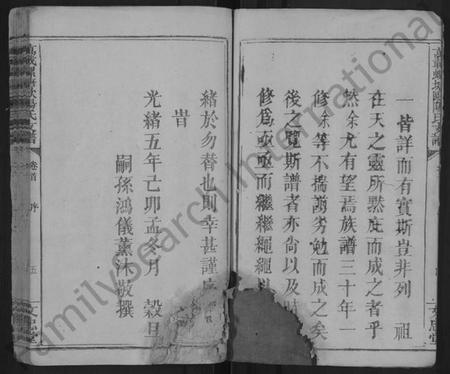 一皆詳而有實斯豈非列 祖
在天之靈所默庇而成之者乎
然余尤有望焉族譜三十年一
修余等不揣謭劣勉而成之矣
後之覽斯譜者亦尙以及時
修爲亟亟而繼繼繩繩
緒於勿替也則幸甚謹序
旹
光緒五年己卯孟冬月 穀旦
嗣孫鴻儀薰沐敬撰
卷首 序 五
FamilySearch International